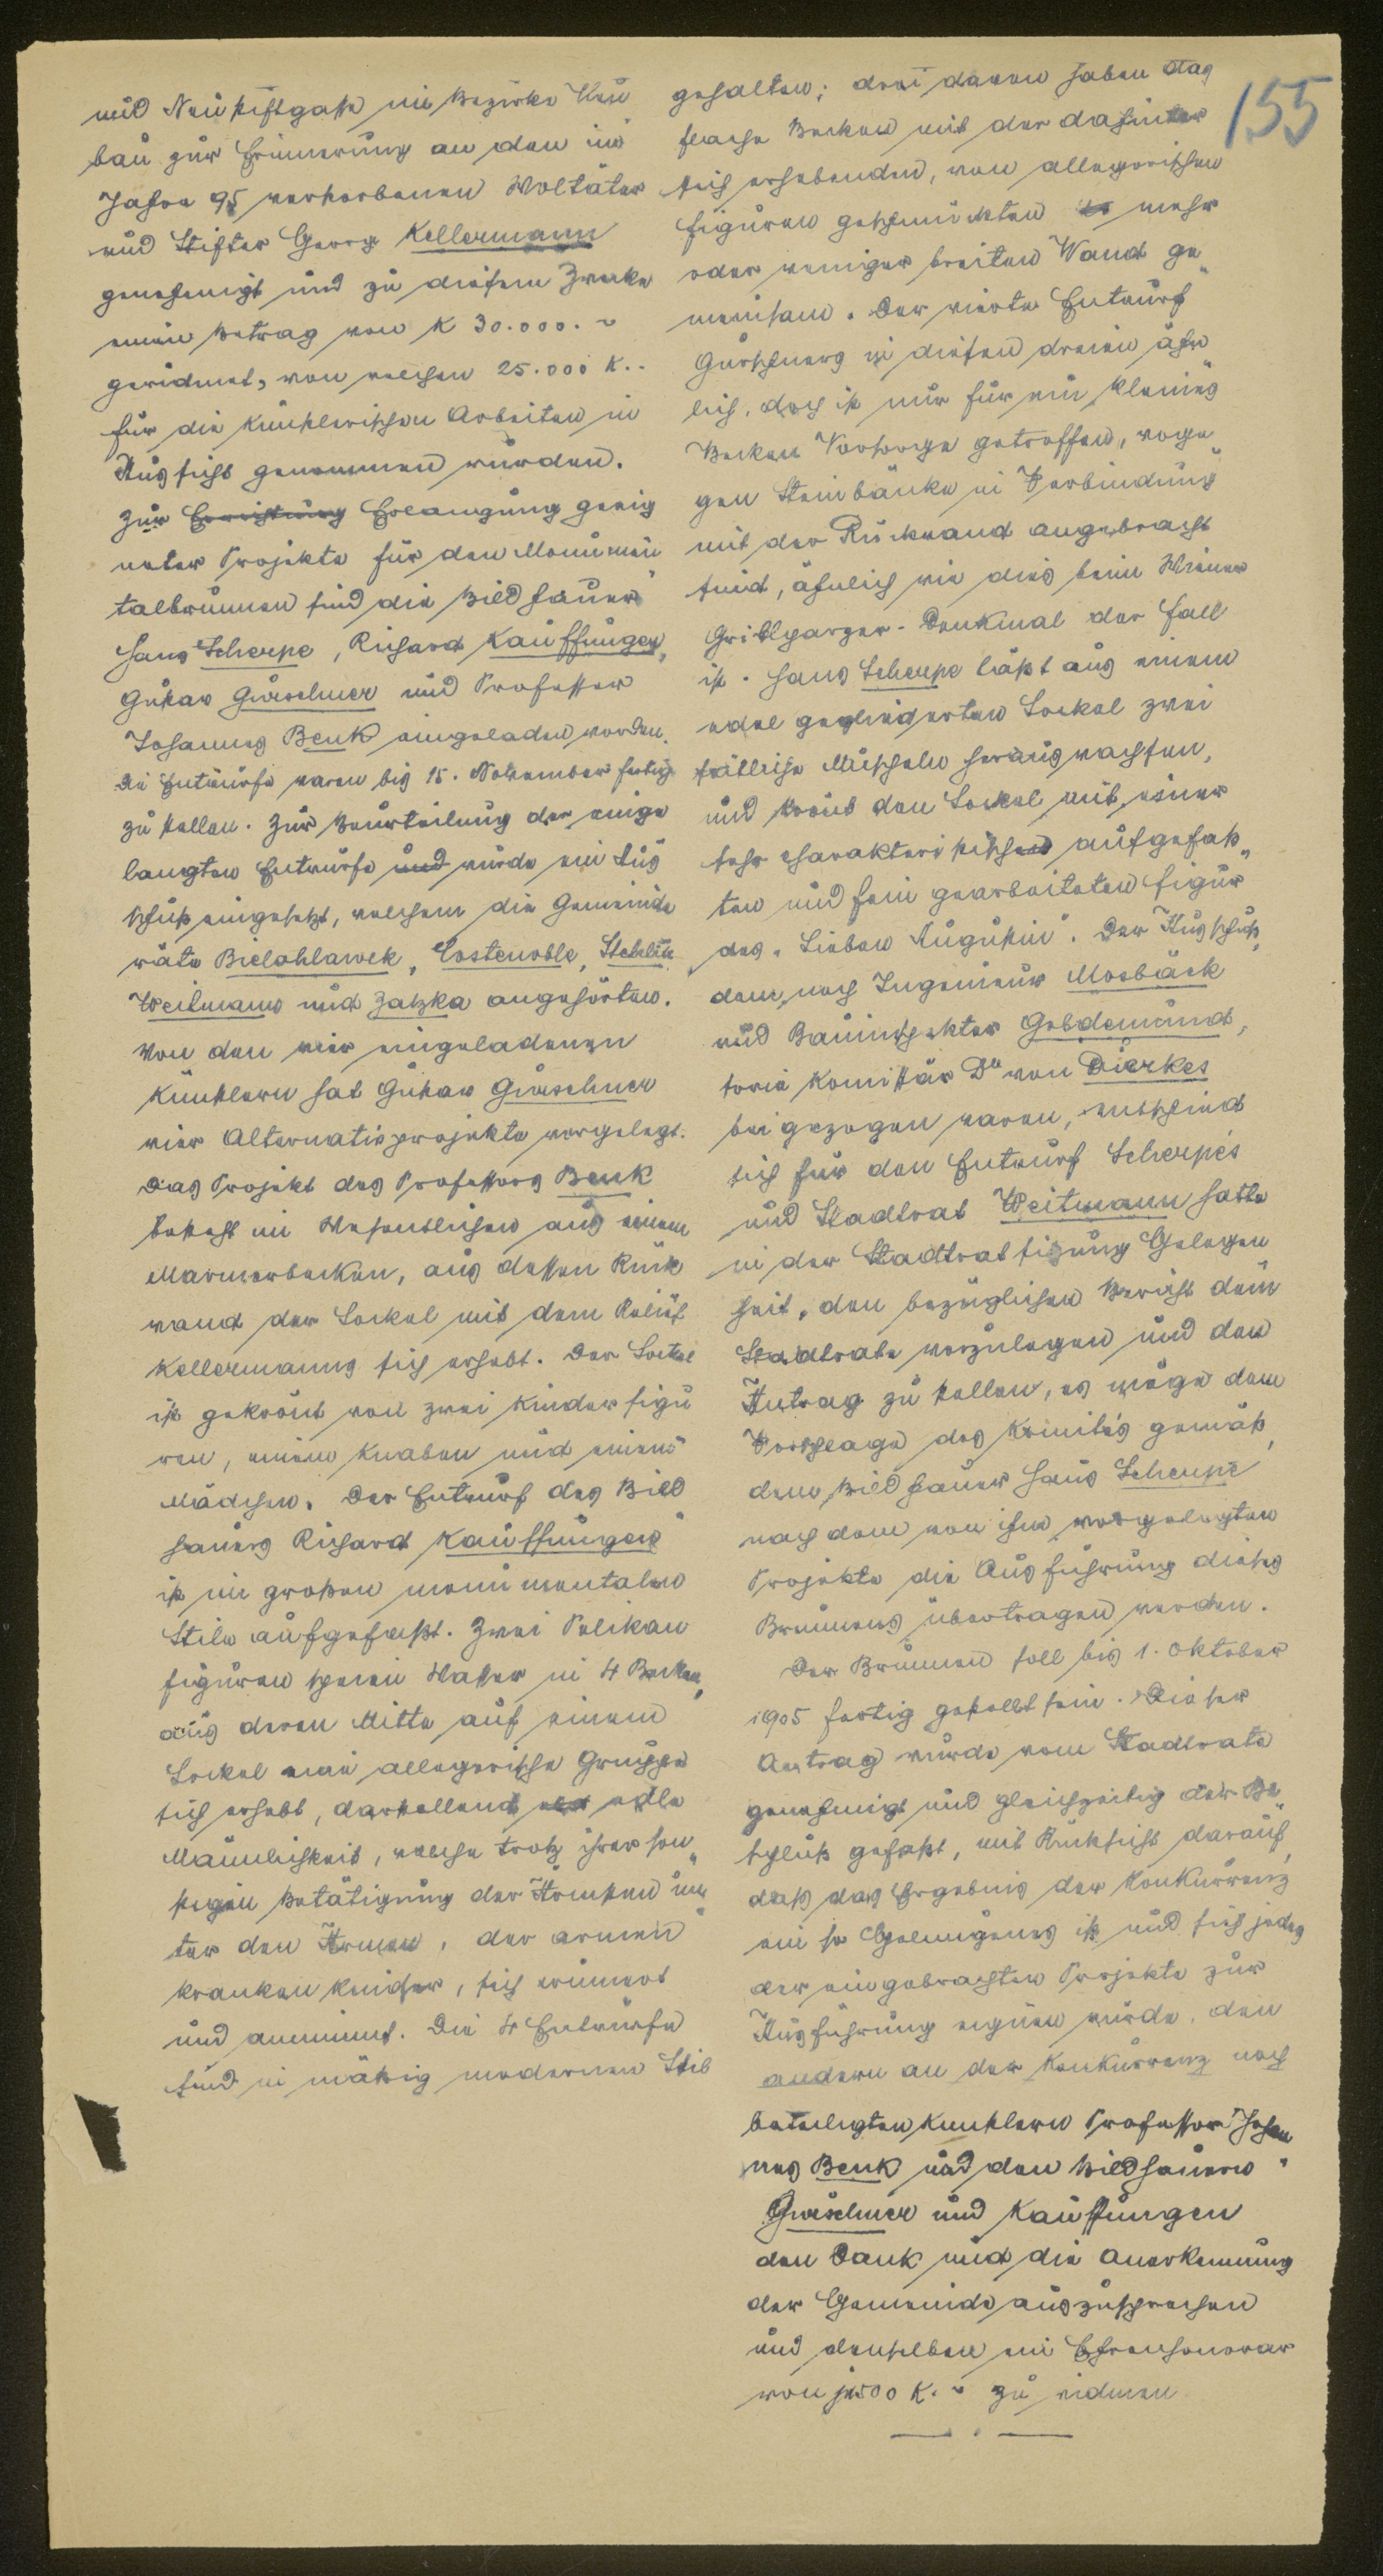 155
und Neustiftgasse im Bezirke Neu
bau zur Erinnerung an den im
Jahre 95 verstorbenen Woltäter
und Stifter Georg Kellermann
genehmigt und zu diesem Zwecke
einen Betrag von K 30.000.-
gewidmet, von welchen 25.000 K.-
für die künstlerischen Arbeiten in
Aussicht genommen wurden.
Zur Errichtung Erlangung geeig
neter Projekte für den Monumen
talbrunnen sind die Bildhauer
Hans Scherpe, Richard Kauffungen,
Gustav Gurschner und Professor
Johannes Benk eingeladen worden.
Die Entwürfe waren bis 15. November fertig
zu stellen. Zur Beurteilung der einge
langten Entwürfe und wurde ein Aus
schuß eingesetzt, welchem die Gemeinde
räte Bielohlawek, Costenoble, Stehlik
Weitmann und Zatzka angehörten.
Von den vier eingeladenen
Künstlern hat Gustav Gurschner
vier Alternativprojekte vorgelegt.
Das Projekt des Professors Benk
besteht im Wesentlichen aus einem
Marmorbecken, aus dessen Rück
wand der Sockel mit dem Relief
Kellermanns sich erhebt. Der Sockel
ist gekrönt von zwei Kinderfigu
ren, einem Knaben und einem
Mädchen. Der Entwurf des Bild
hauers Richard Kauffungen
ist im großen monumentalen
Stile aufgefaßt. Zwei Pelikan
figuren speien Wasser in 4 Becken,
aus deren Mitte auf einem
Sockel eine allegorische Gruppe
sich erhebt, darstellend edle
Männlichkeit, welche trotz ihrer son
stigen Betätigung der Ärmsten un
ter den Armen, der armen
kranken Kinder, sich erinnert
und annimmt. Die 4 Entwürfe
sind in mäßig modernen Stil
gehalten; drei davon haben das
flache Becken mit der dahinter
sich erhebenden, von allegorischen
Figuren geschmückten mehr
oder weniger breiten Wand ge
meinsam. Der vierte Entwurf
Gurschners ist diesen dreien ähn
lich, doch ist nur für ein kleines
Becken Vorsorge getroffen, woge
gen Steinbänke in Verbindung
mit der Rückwand angebracht
sind, ähnlich wie dies beim Wiener
Grillparzer-Denkmal der Fall
ist. Hans Scherpe läßt aus einem
edel gegliederten Sockel zwei
seitliche Muscheln herauswachsen,
und krönt den Sockel mit einer
sehr charakteristisch aufgefaß
ten und fein gearbeiteten Figur
des "Lieben Augustin". Der Ausschuß,
dem noch Ingenieur Mosbäck
und Bauinspektor Goldemund,
sowie Komissär Dr von Dierkes
beigezogen waren, entschied
sich für den Entwurf Scherpes
und Stadtrat Weitmann hatte
in der Stadtratsitzung Gelegen
heit, den bezüglichen Bericht dem
Stadtrate vorzulegen und den
Antrag zu stellen, es möge dem
Vorschlage des Komités gemäß,
dem Bildhauer Hans Scherpe
nach dem von ihm vorgelegten
Projekte die Ausführung dieses
Brunnens übertragen werden.
Der Brunnen soll bis 1. Oktober
1905 fertig gestellt sein. Dieser
Antrag wurde vom Stadtrate
genehmigt und gleichzeitig der Be
schluß gefaßt, mit Rücksicht darauf,
daß das Ergebnis der Konkurrenz
ein so Gelungenes ist und sich jedes
der eingebrachten Projekte zur
Ausführung eignen würde, den
andern an der Konkurrenz noch
beteiligten Künstlern Professor Johan
nes Benk und den Bildhauern
Gurschner und Kauffungen
den Dank und die Anerkennung
der Gemeinde auszusprechen
und denselben ein Ehrenhonorar
von je 500 K.- zu widmen